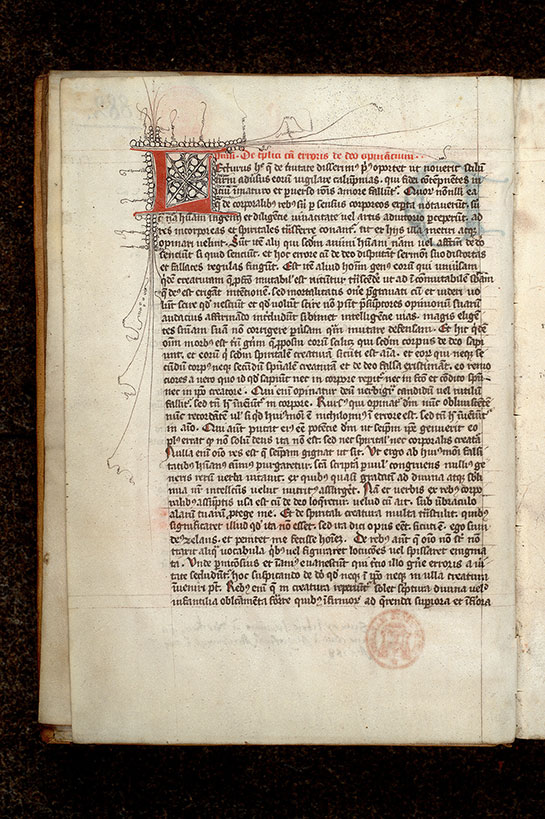 De tplici cā erroris de deo opinātium
Lecturus h̄ q̄ de t̄nitate disserim9 p9 oportet ut noverit stilū
nr̄m adv̄sus eorū vigilare calūpnias, qui fidei cōtēpnētes ini
ciū īmaturo et p̄verso rōnis amore fallūt͛. Quor9 nōnlli ea
q̄ de corporalib9 reb9 siū p sensus corporeos exp̄ta notaverūt. siū
q̄ nā hūani ingenii et diligētie vivacitate vel artis adiutorio p̄ceperūt. ad
res incorporeas et spiritales trāsferre conant͛. ut ex hiis illa metiri atq3
opinari velint. Sūt itē alij qui sedm animi hūani nām vel affm̄ de dō
senciūt si quid senciūt. et hoc errore cū de deo disputāt sermōi suo distortas
et fallaces regulas figūt. Est itē aliud hoīnm gen9 eorū qui univ̄sam
q̄de creaturam q̄ p̄fcō mutabil' est nitūt͛ trāscēdē ut ad īcōmutabilē sb̄am
q̄ de9 est erigāt intēcionē. sed mortalitatis onē p̄gravati cū et videri vo
lūt scire qd̄ nesciūt et qd̄ volūt scire nō pn̄t p̄sūptiores opinionū suarū
audacius affirmādo intcludūt sibimet intelligēcie vias. magis eligē
es sn̄iam suā nō corrigere p̄v̄sam qm̄ mutare defensam. Et hic q̄de
oīm morb9 est triū genū q̄ p̄posui eorū scilic3 qui sedm corpus de deo sapi
unt. et eorū q̄ sedm spiritalē creaturā sicuti est aīa. et eor9 qui neq3 se
cūdū corp9 neq3 secūdū sp̄ualē creaturā et de deo falsa existimāt. eo remo
ciores a vero quo id qd̄ sapiūt nec in corpore repit͛ nec in fcō et cōdito sp̄u
nec in ip̄o creatore. Qui em̄ opinatur deū verbigrā candidū vel rutilū
fallit͛. sed tn̄ h̄ inveiūt͛ in corpore. Rursus qui opinat͛ dm̄ nūc obliviscētē
nūc recordātē ul' si qd hui9mōi ē nichilomi9 ī errore est. sed tn̄ h̄ inveiūt͛
in aīo. Qui aūt putat ei9 eē potēcie dm̄ ut seip̄m ip̄e genuerit eo
pl9 errat q nō solū deus ita nō est. sed nec spirital' nec corporalis creatā
Nulla em̄ oīo res est q̄ seip̄am gignat ut sit. Ut ergo ab hui9mōi falsi
tatib9 hūan9 aīm9 purgaretur. scā sc'ptā p̄vul' congruens nulli9 ge
neris rerū verba vitavit. ex quib9 quasi gradatī ad divina atq3 subli
mia nr̄ intellc̄us velut nutrit9 assurget. Nā et verbis ex reb9 corpo
ralib9 assūptis usa est cū de deo loq̄retur. velud cū ait. sub ūbraculo
alarū tuarū p̄tege me. Et de spiritali creatura multa trāstulit. quib9
significaret illud qd̄ ita nō esset. sed ita dici opus eēt. sicuti ē. ego sum
de9 zelans. et penitet me fecisse hoīez. De reb9 aūt q̄ oīo nō st nō
traxit aliq̄ vocabula q̄b9 vel figuraret locucōes vel spissaret enigma
ta. Unde p̄niciosius et inani9 evanescūt qui t̄cio illo gn̄e erroris a v̄i
tate secludūt͛. hoc suspicando de dō qd̄ neq3 ī ip̄o neq3 in ulla creatura
īveniri pt̄. Reb9 em̄ q̄ in creatura reperiūt͛ solet sc'ptura divina vel'
infantilia oblectamēta formare quib9 īfirmor9 ad q̄rendā supiora et īferiora